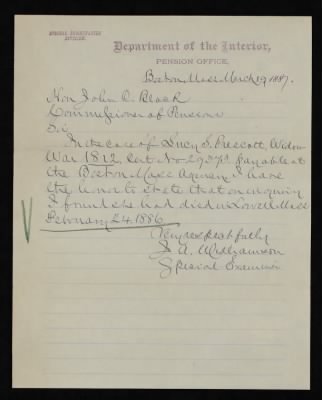 SPECIAL EXAMINATION
DIVISION.
Department of the Interior,
PENSION OFFICE,
Boston Mass March 19, 1887.
Hon John C. Black
Commissioner of Pensions
Sir
In the case of Lucy S. Prescott, Widow
War 1812, Cert No payable at
the Boston Mass Agency I have
the honor to state that on inquiry
I found she had died in Lowell Mass
February 24, 1886.
Very respectfully
A.
Special Examiner